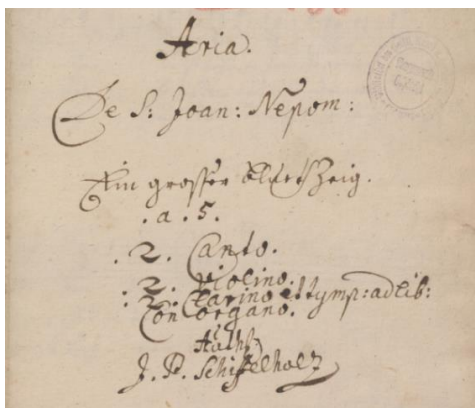 Aria.
De S: Joan: Nepom:
Ein grosser blutszeig.
.a. 5.
.2. Canto.
.2. Violino.
.2. Clarino et tymp: ad lib:
Con organo.
Auth:
J. P. Schiffelholz